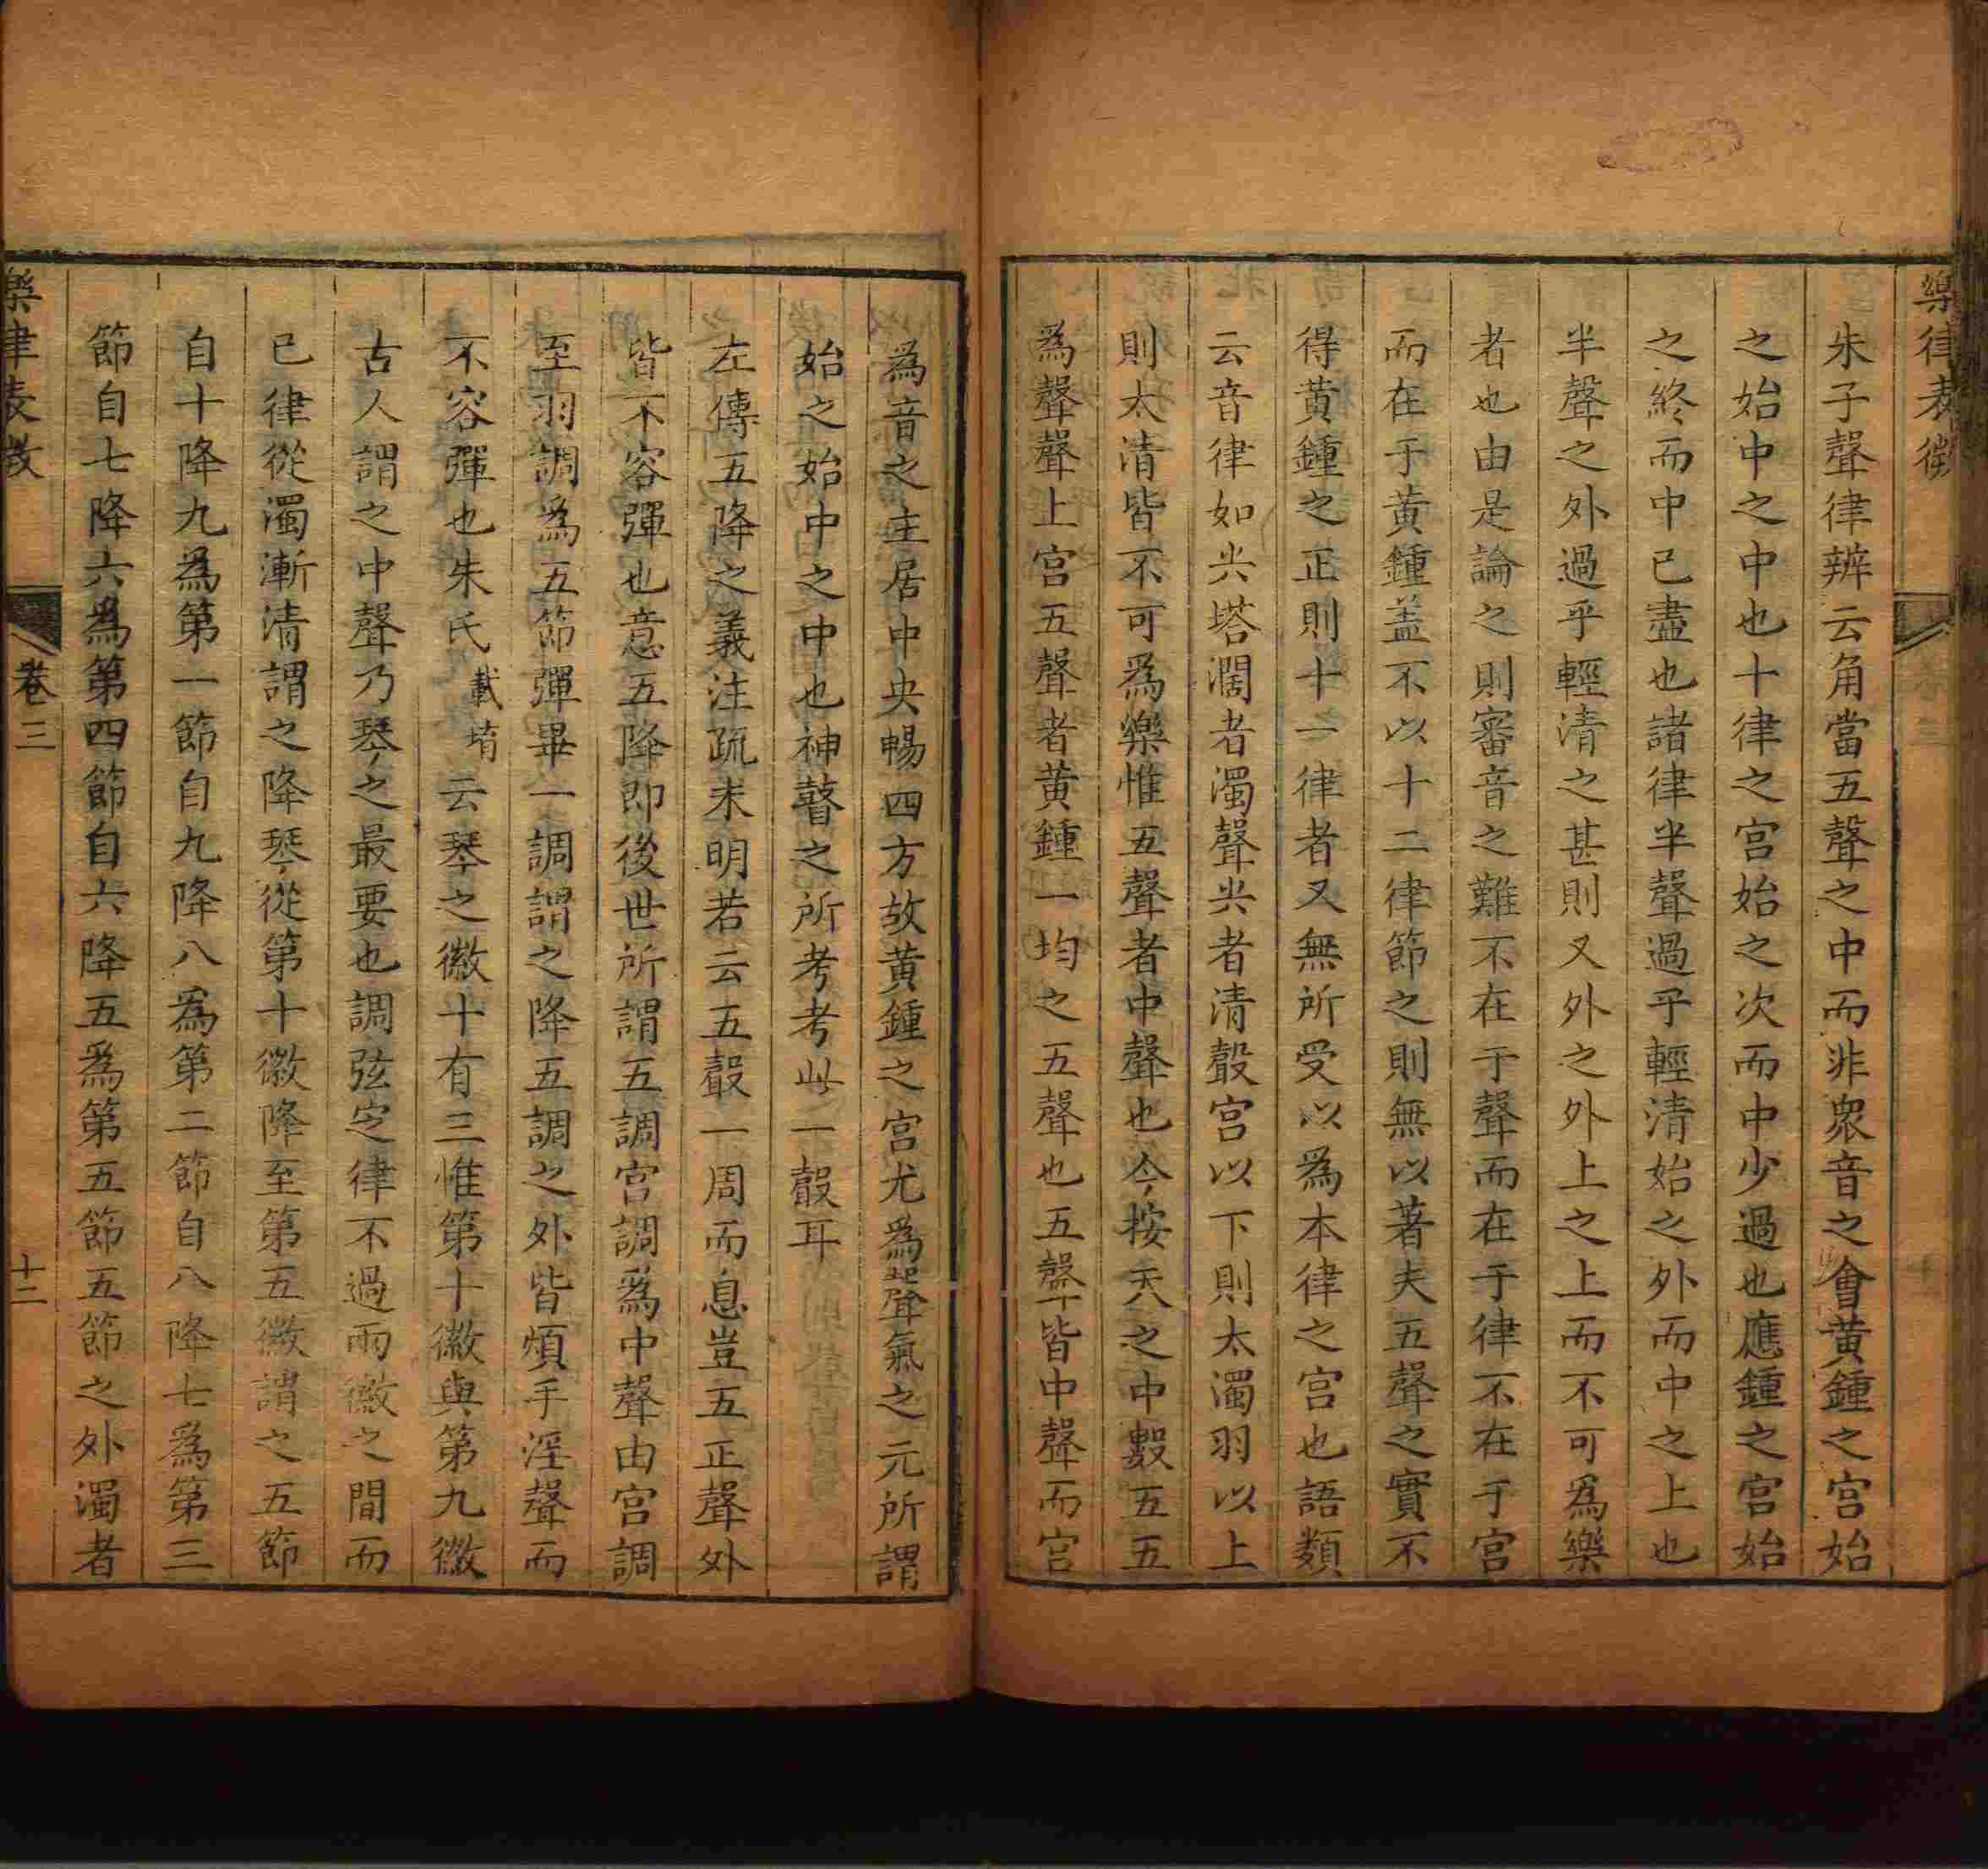 樂律表微
朱子聲律辨云角當五聲之中而非衆音之會黄鍾之宫始
之始中之中也十律之宫始之次而中少過也應鍾之宫始
之終而中已盡也諸律半聲過乎輕清始之外而中之上也
半聲之外過乎輕清之甚則又外之外上之上而不可為樂
者也由是論之則審音之難不在于聲而在于律不在于宫
而在于黄鍾盖不以十二律節之則無以著夫五聲之實不
得黄鍾之正則十一律者又無所受以為本律之宫也語類
云音律如尖塔濶者濁聲尖者清聲宫以下則太濁羽以上
則太清皆不可爲樂惟五聲者中聲也今按天之中數五五
爲聲聲上宫五聲者黄鍾一均之五聲也五聲皆中聲而宫
爲音之主居中央暢四方故黄鍾之宫尤爲聲氣之元所謂
始之始中之中也神瞽之所考考此一聲耳
左傳五降之義注疏未明若云五聲一周而息豈五正聲外
皆不容彈也意五降即後世所謂五調宫調爲中聲由宫調
至羽調爲五節彈畢一調謂之降五調之外皆煩手淫聲而
不容彈也朱氏載堉云琴之徽十有三惟第十徽與第九徽
古人謂之中聲乃琴之最要也調弦定律不過兩徽之間而
已律從濁漸清謂之降琴從第十徽降至第五徽謂之五節
自十降九爲第一節自九降八爲第二節自八降七爲第三
節自七降六爲第四節自六降五爲第五節五節之外濁者
樂律表微
卷三
十二